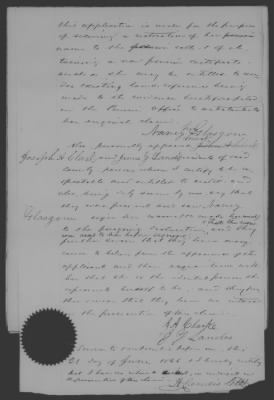 this application is made for the purpose
of securing a restoration of her
name to the pension roll, & of ob-
taining a new pension certificate
such as she may be entitled to un-
der existing laws reference being
made to the evidence
in the Pension Office to substantiate
her original claim.
Nancy Glasgow
Also personally appeared
Joseph H Clark, and James G Landes residents of said
county persons whom I certify to be re-
spectable and entitled to credit &
who, being duly sworn say that
they were present and saw Nancy
Glasgow sign her name
to the foregoing declaration, and they
further swear that they have every
reason to believe from the appearance of the
applicant and their acquaintance with
her that she is the identical person she
represents herself to be, and they
further swear that they have no interest
in the prosecution of this claim
Clarke
J G Landes
Sworn to & subscribed before me this
21 day of June 1866 & I hereby certify
that I have no interest
the prosecution of this claim
Landis